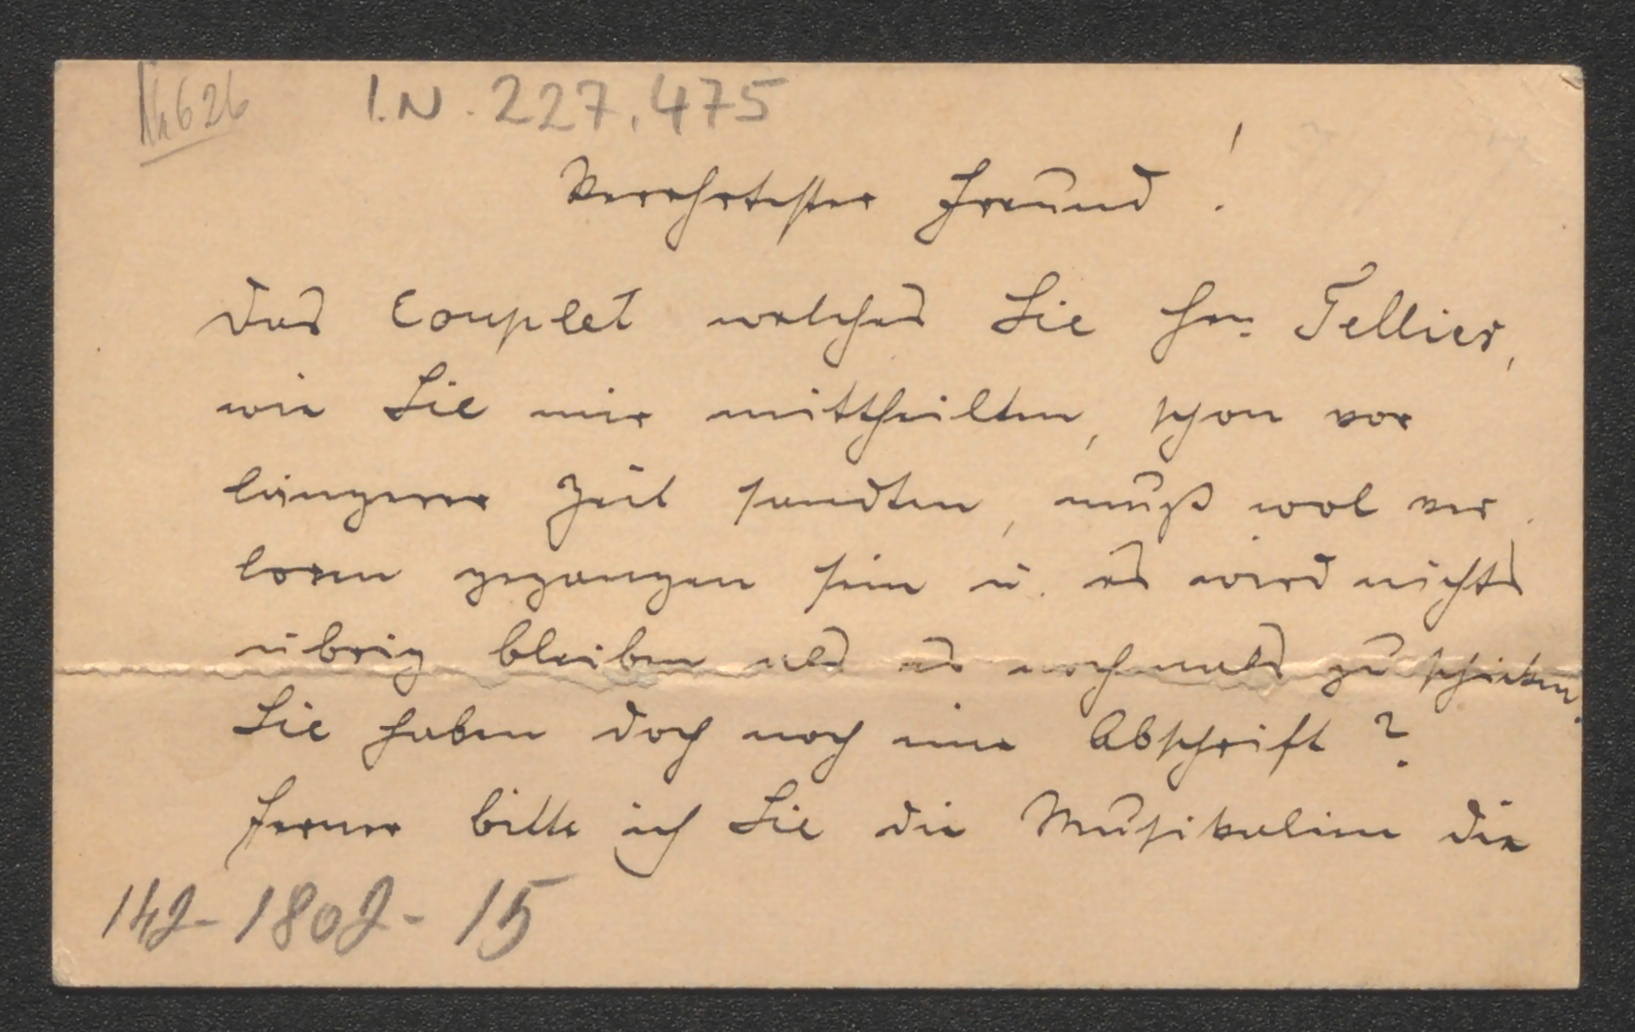 I.N. 227.475
Verehrtester Freund!
Das Couplet welches Sie Hrn. Tellier,
wie Sie mir mittheilten, schon vor
längerer Zeit sandten, muß wol ver
loren gegangen sein u. es wird nichts
übrig bleiben als es nochmals zu schicken.
Sie haben doch noch eine Abschrift?
Ferner bitte ich Sie die Musikalien die
142-1802-15